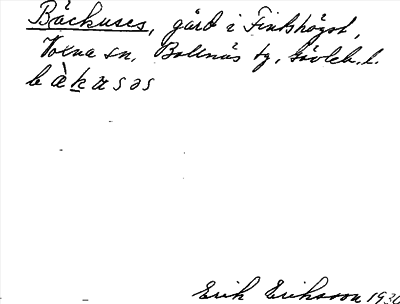 Bäckuses, gård i Finnshögst,
Voxna sn, Bollnäs tg, Gävleb. l.
bàkasəs
Erik Eriksson 1930